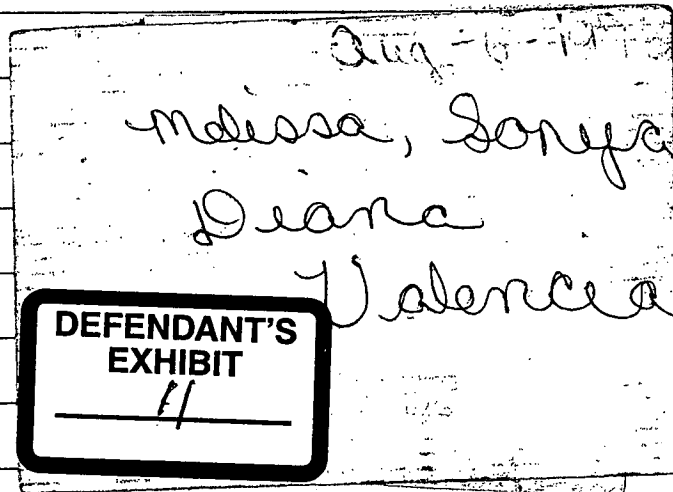 Aug - 6 -
Melissa, Sonya
Diana
Valencia
DEFENDANT'S
EXHIBIT
11